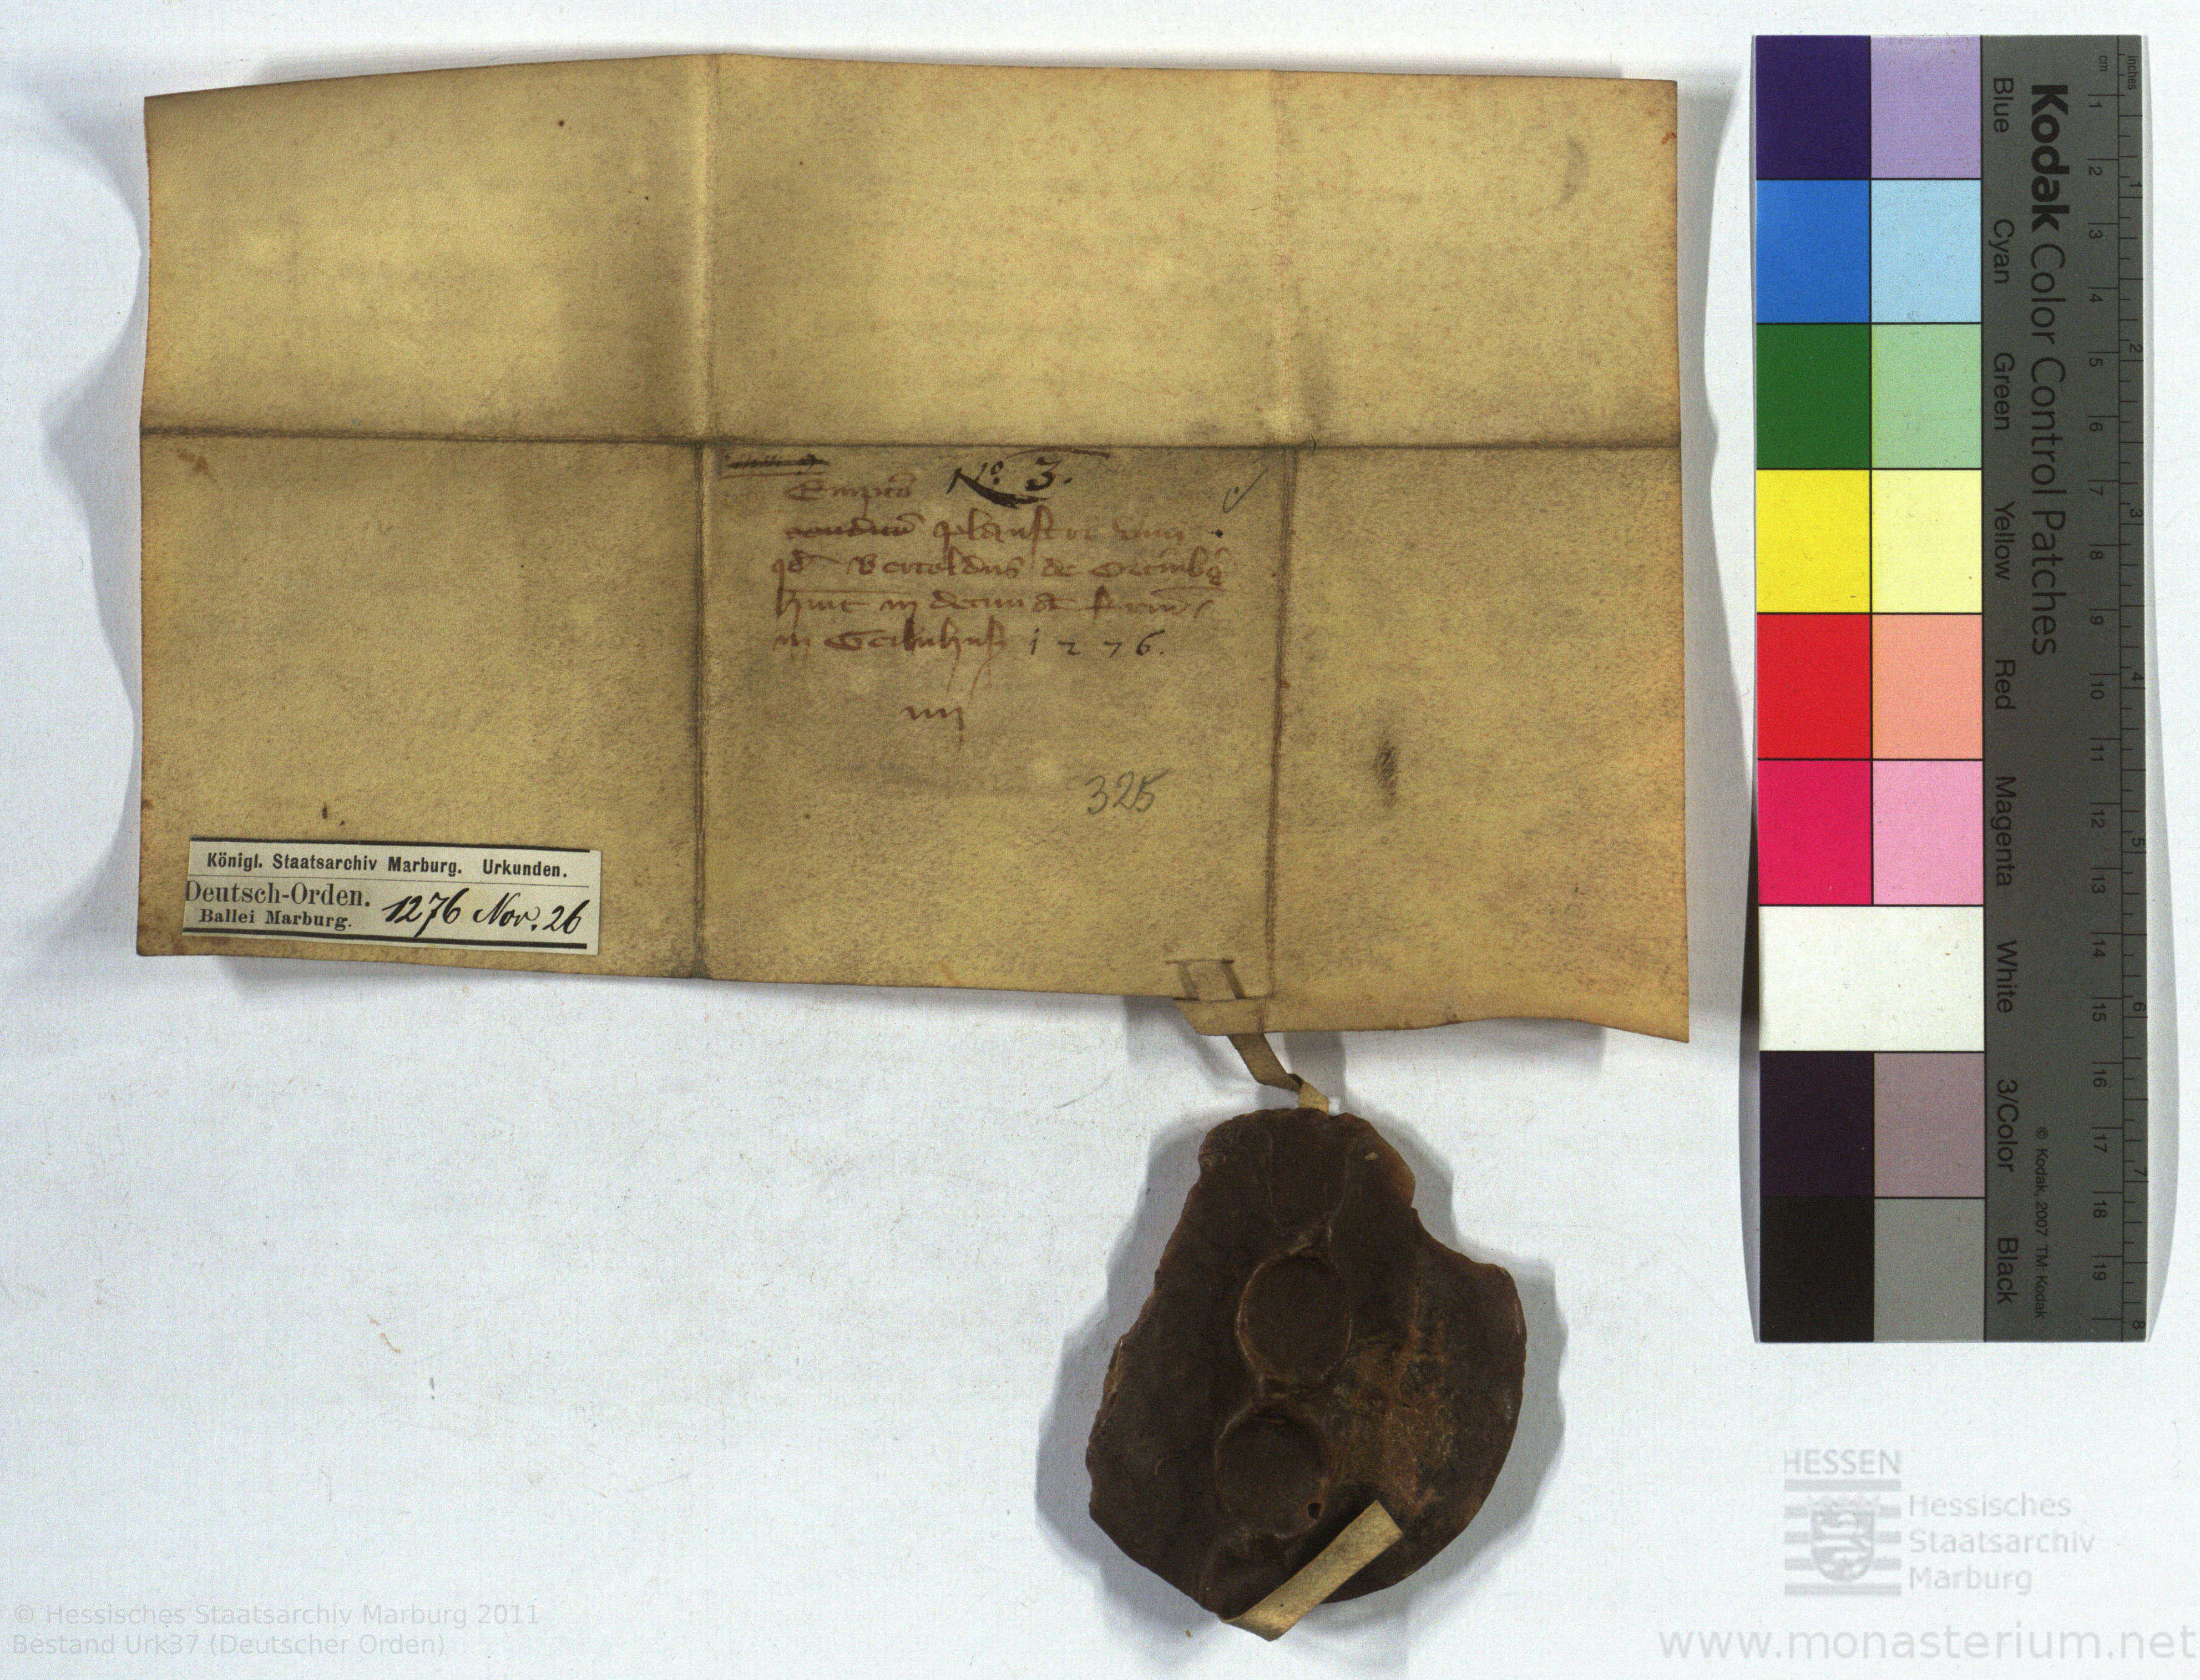 Nº 3.
Emptio
plaustr vini
qd Bertoldus de
huit in decima
in Geilnhus 1276.
iiij
325
Königl. Staatsarchiv Marburg. Urkunden.
Deutsch-Orden.
Ballei Marburg. 1276 Nov. 26
Kodak Color Control Patches
Blue Cyan Green Yellow Red Magenta White 3/Color Black
© Kodak, 2007 TM: Kodak
cm 1 2 3 4 5 6 7 8 9 10 11 12 13 14 15 16 17 18 19
inches 1 2 3 4 5 6 7 8
HESSEN
Hessisches
Staatsarchiv
Marburg
© Hessisches Staatsarchiv Marburg 2011
Bestand Urk37 (Deutscher Orden)
www.monasterium.net